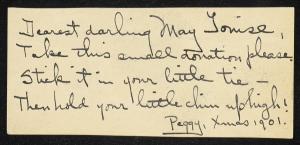 Dearest darling May Louise,
Take this small donation please.
Stick it in your little tie –
Then hold your little chin up high!
Peggy, Xmas 1901.